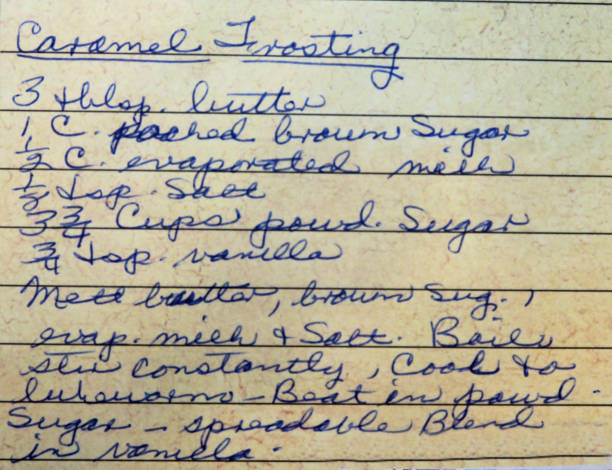 Caramel Frosting
3 tblsp. butter
1 C. packed brown Sugar
1/2 C. evaporated milk
1/2 tsp. Salt
3 3/4 Cups powd. Sugar
3/4 tsp. vanilla
Melt butter, brown Sug.,
evap. milk & Salt. Boil,
stir constantly, Cool to
lukewarm - Beat in powd.
Sugar - spreadable Blend
in vanilla.